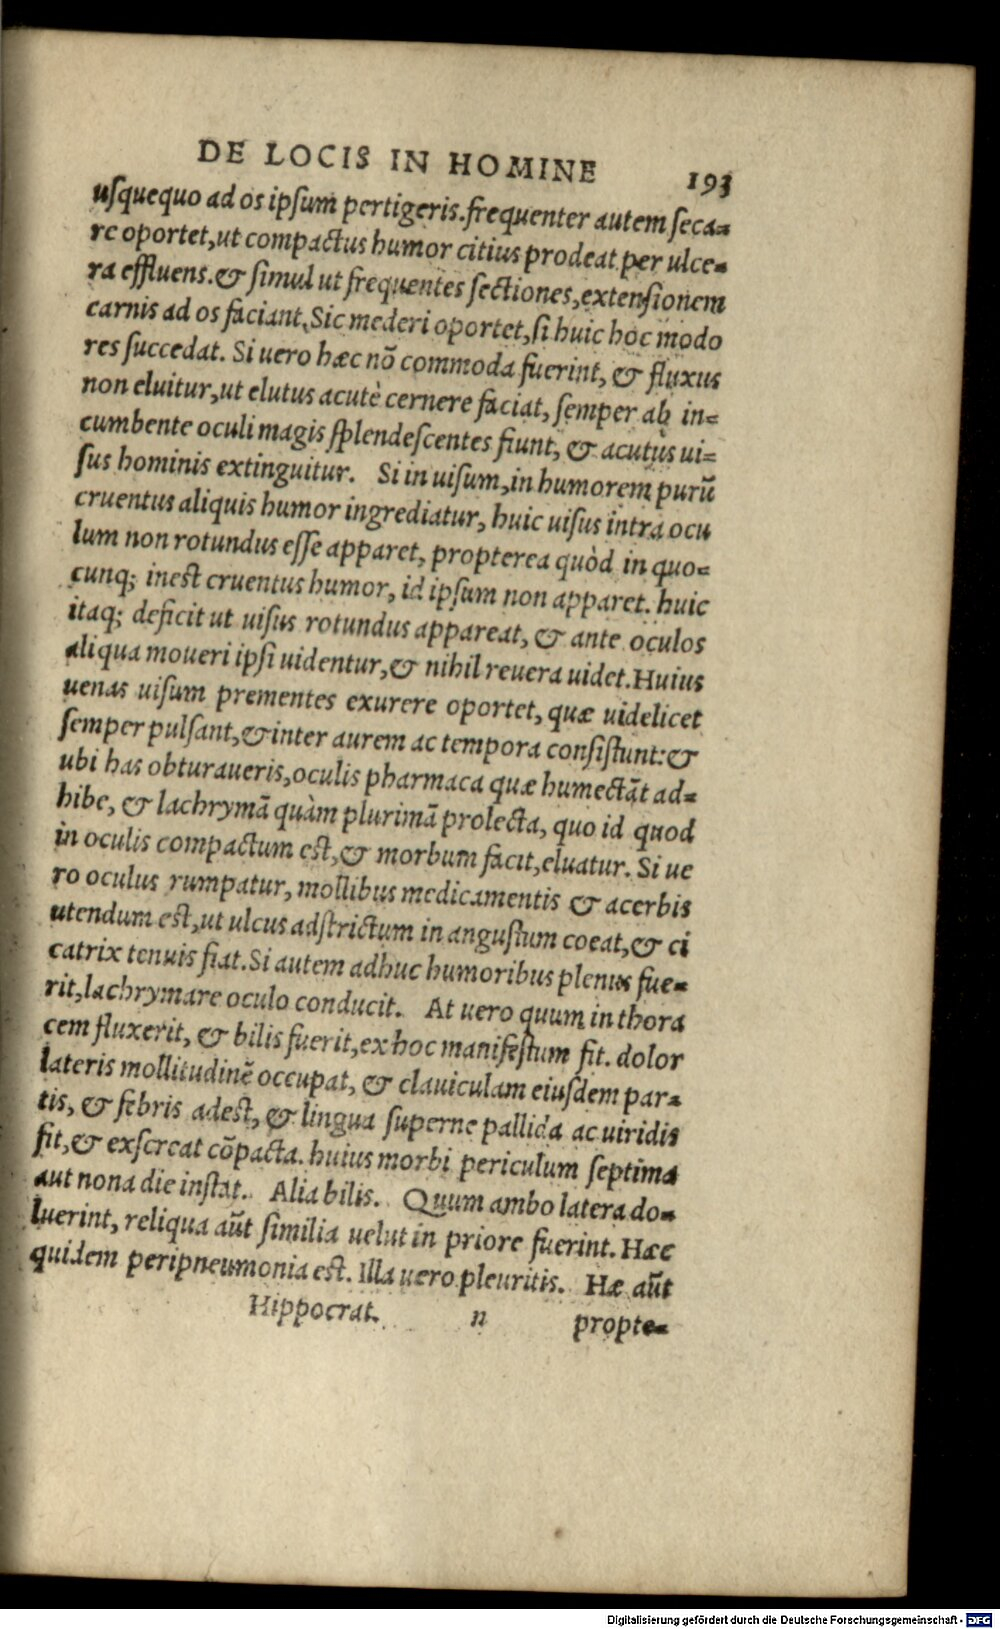 DE LOCIS IN HOMINE 193
usquequo ad os ipsum pertigeris. frequenter autem seca-
re oportet, ut compactus humor citius prodeat per ulce-
ra effluens. & simul ut frequentes sectiones, extensionem
carnis ad os faciant, Sic mederi oportet, si huic hoc modo
res succedat. Si uero hæc nõ commoda fuerint, & fluxus
non eluitur, ut elutus acutè cernere faciat, semper ab in-
cumbente oculi magis splendescentes fiunt, & acutus ui-
sus hominis extinguitur. Si in uisum, in humorem purũ
cruentus aliquis humor ingrediatur, huic uisus intra ocu
lum non rotundus esse apparet, propterea quòd in quo-
cunq; inest cruentus humor, id ipsum non apparet. huic
itaq; deficit ut uisus rotundus appareat, & ante oculos
aliqua moueri ipsi uidentur, & nihil reuera uidet. Huius
uenas uisum prementes exurere oportet, quæ uidelicet
semper pulsant, & inter aurem ac tempora consistunt: &
ubi has obturaueris, oculis pharmaca quæ humectãt ad-
hibe, & lachrymã quàm plurimã prolecta, quo id quod
in oculis compactum est, & morbum facit, eluatur. Si ue
ro oculus rumpatur, mollibus medicamentis & acerbis
utendum est, ut ulcus adstrictum in angustum coeat, & ci
catrix tenuis fiat. Si autem adhuc humoribus plenus fue-
rit, lachrymare oculo conducit. At uero quum in thora
cem fluxerit, & bilis fuerit, ex hoc manifestum fit. dolor
lateris mollitudinẽ occupat, & clauiculam eiusdem par-
tis, & febris adest, & lingua superne pallida ac uiridis
fit, & exscreat cõpacta. huius morbi periculum septima
aut nona die instat. Alia bilis. Quum ambo latera do-
luerint, reliqua aũt similia uelut in priore fuerint. Hæc
quidem peripneumonia est. Illa uero pleuritis. Hæ aũt
Hippocrat. n propte-
Digitalisierung gefördert durch die Deutsche Forschungsgemeinschaft - DFG